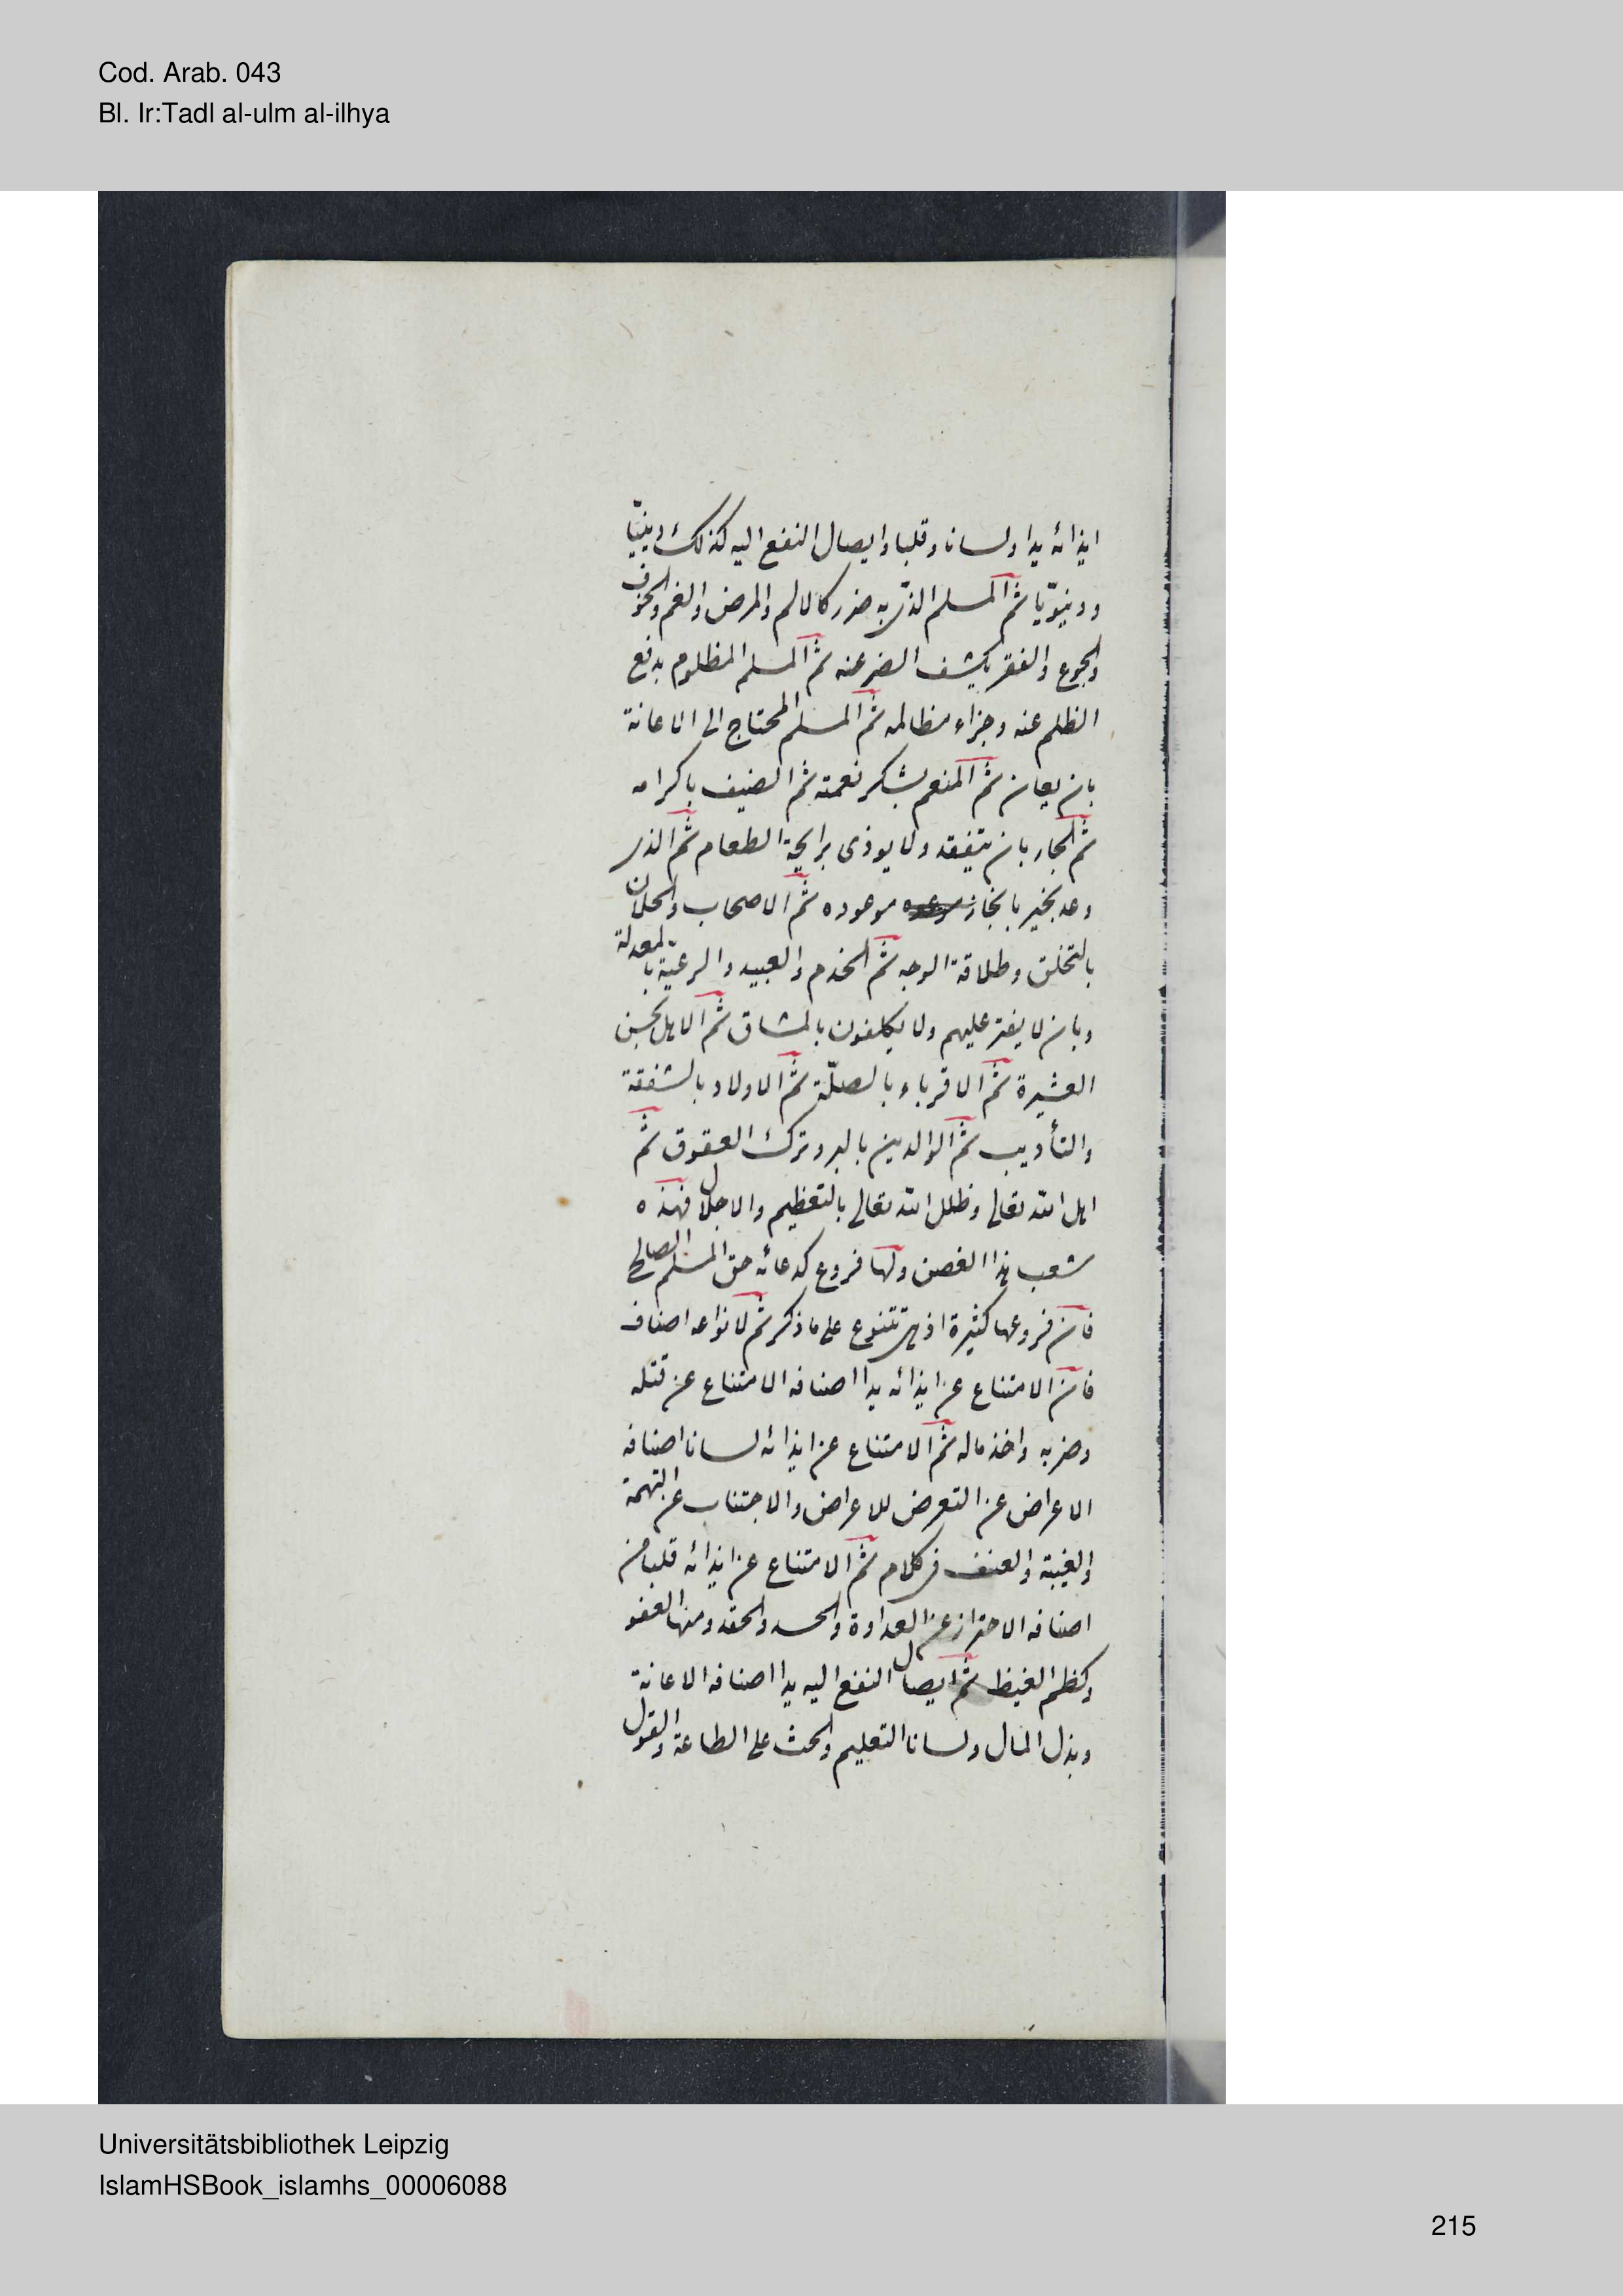 Cod. Arab. 043
Bl. Ir:Tadl al-ulm al-ilhya
ايذائه يدا ولسانا وقلبا وايصال النفع اليه كذلك دينيّا
ودنيويّا ثم المسلم الذى به ضرر كالالم والمرض والغم والخوف
والجوع والفقر بكشف الضر عنه ثم المسلم المظلوم بدفع
الظلم عنه وجزاء مظالمه ثم المسلم المحتاج الى الاعانة
بان يعان ثم المنعم بشكر نعمته ثم الضيف باكرامه
ثم الجار بان يتفقد ولا يوذى برايحة الطعام ثم الذى
وعد بخير بانجاز موعوده ثم الاصحاب والخلان
بالتخلق وطلاقة الوجه ثم الخدم والعبيد والرعية بالمعدلة
وبان لا يفتر عليهم ولا يكلفون بالمشاق ثم الاهل بحسن
العشيرة ثم الاقرباء بالصلّة ثم الاولاد بالشفقة
والتأديب ثم الوالدين بالبر وترك العقوق ثم
اهل الله تعالى وظلل الله تعالى بالتعظيم والاجلال فهذه
شعب هذا الغصن ولها فروع كدعائه حق المسلم الصالح
فان فروعها كثيرة اذ هى تتنوع على ما ذكر ثم لانواعه اصناف
فان الامتناع عن ايذائه يدا اصنافه الامتناع عن قتله
وضربه واخذ ماله ثم الامتناع عن ايذائه لسانا اصنافه
الاعراض عن التعرض للاعراض والاجتناب عن التهمة
والغيبة والعنف فى كلام ثم الامتناع عن ايذائه قلبا من
اصنافه الاحتراز عن العداوة والحسد والحقد ومنها العفو
وكظم الغيظ ثم ايصال النفع اليه يدا اصنافه الاعانة
وبذل المال ولسانا التعليم والحث على الطاعة والقول
Universitätsbibliothek Leipzig
IslamHSBook_islamhs_00006088
215